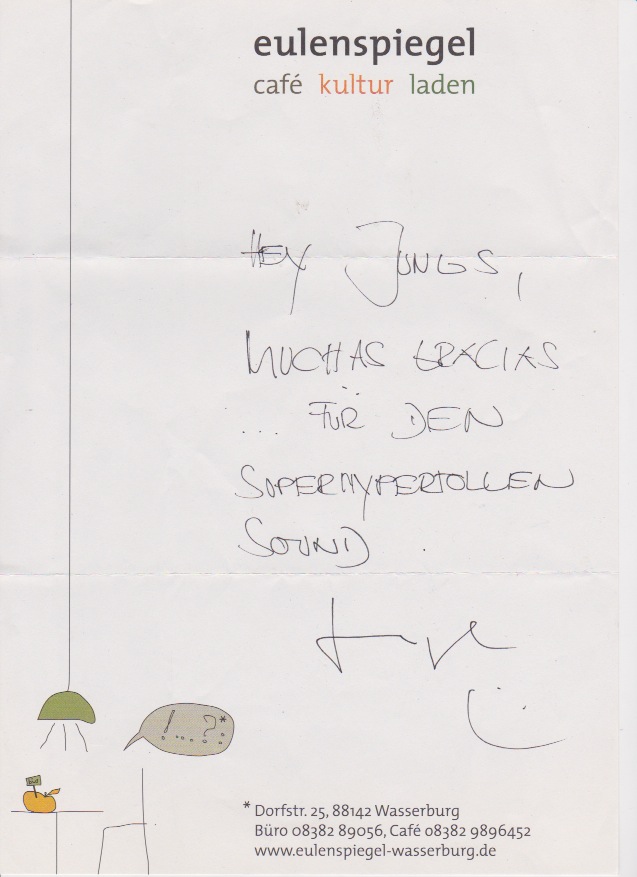 eulenspiegel
café kultur laden
HEY JUNGS,
MUCHAS GRACIAS
... FÜR DEN
SUPERHYPERTOLLEN
SOUND.
!....?*
* Dorfstr. 25, 88142 Wasserburg
Büro 08382 89056, Café 08382 9896452
www.eulenspiegel-wasserburg.de